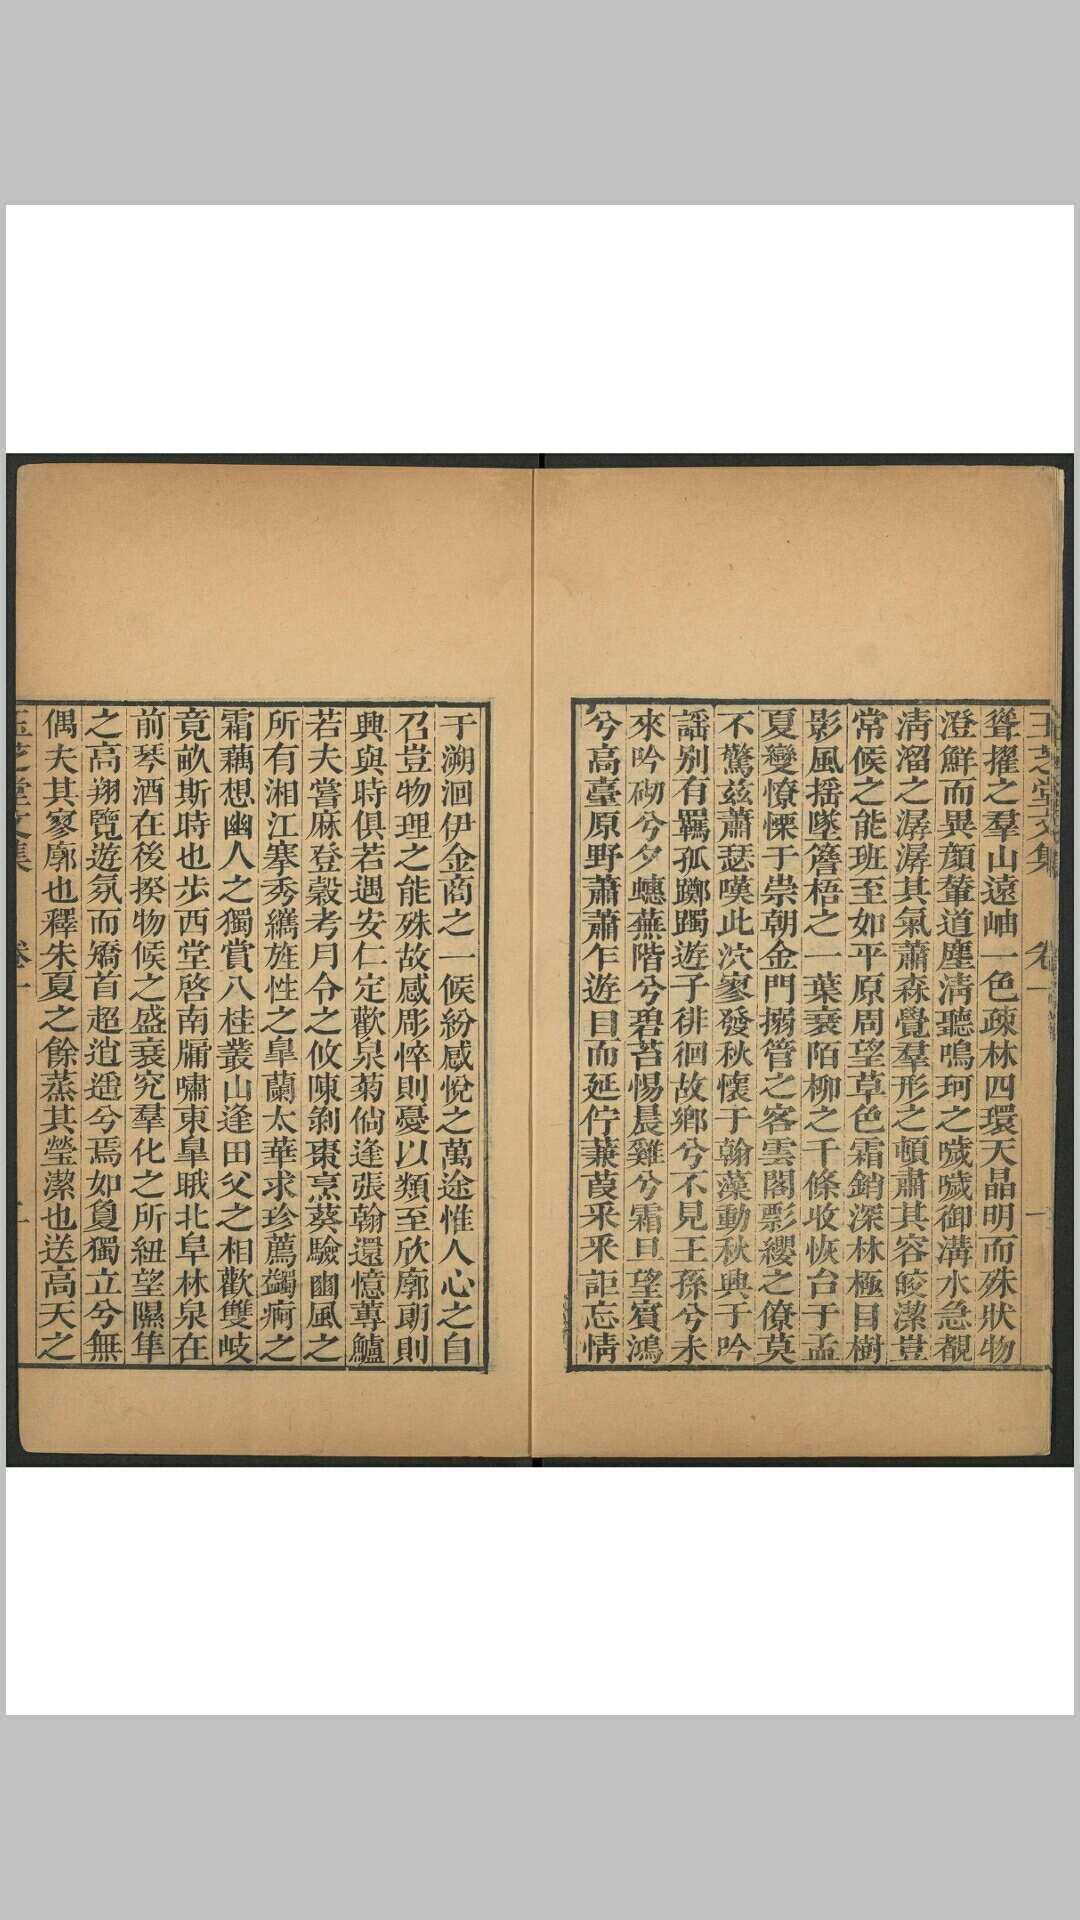 玉芝堂文集 卷一
聳擢之羣山遠岫一色疎林四環天晶明而殊狀物
澄鮮而異顏輦道塵淸聽鳴珂之噦噦御溝水急覩
淸溜之潺潺其氣蕭森覺羣形之頓肅其容皎潔豈
常候之能班至如平原周望草色霜銷深林極目樹
影風揺墜簷梧之一葉衰陌柳之千條收恢台于孟
夏變憭慄于崇朝金門搦管之客雲閣影纓之僚莫
不驚兹蕭瑟嘆此泬寥發秋懷于翰藻動秋興于吟
謡别有羈孤躑躅遊子徘徊故鄉兮不見王孫兮未
來吟砌兮夕蟪蕪階兮碧苔惕晨雞兮霜旦望賓鴻
兮高臺原野蕭蕭乍遊目而延佇蒹葭釆釆詎忘情
于溯洄伊金商之一候紛感悅之萬途惟人心之自
召豈物理之能殊故感彫悴則憂以類至欣廓朗則
興與時俱若遇安仁定歡泉菊倘逢張翰還憶蓴鱸
若夫嘗麻登穀考月令之攸陳剝棗烹葵驗豳風之
所有湘江搴秀纕旌性之臯蘭太華求珍薦蠲痾之
霜藕想幽人之獨賞八桂叢山逢田父之相歡雙岐
竟畝斯時也步西堂啓南牖嘯東臯眺北阜林泉在
前琴酒在後揆物候之盛衰究羣化之所紐望隰隼
之高翔覽遊氛而矯首超逍遥兮焉如敻獨立兮無
偶夫其寥廓也釋朱夏之餘蒸其瑩潔也送高天之
玉芝堂文集 卷一